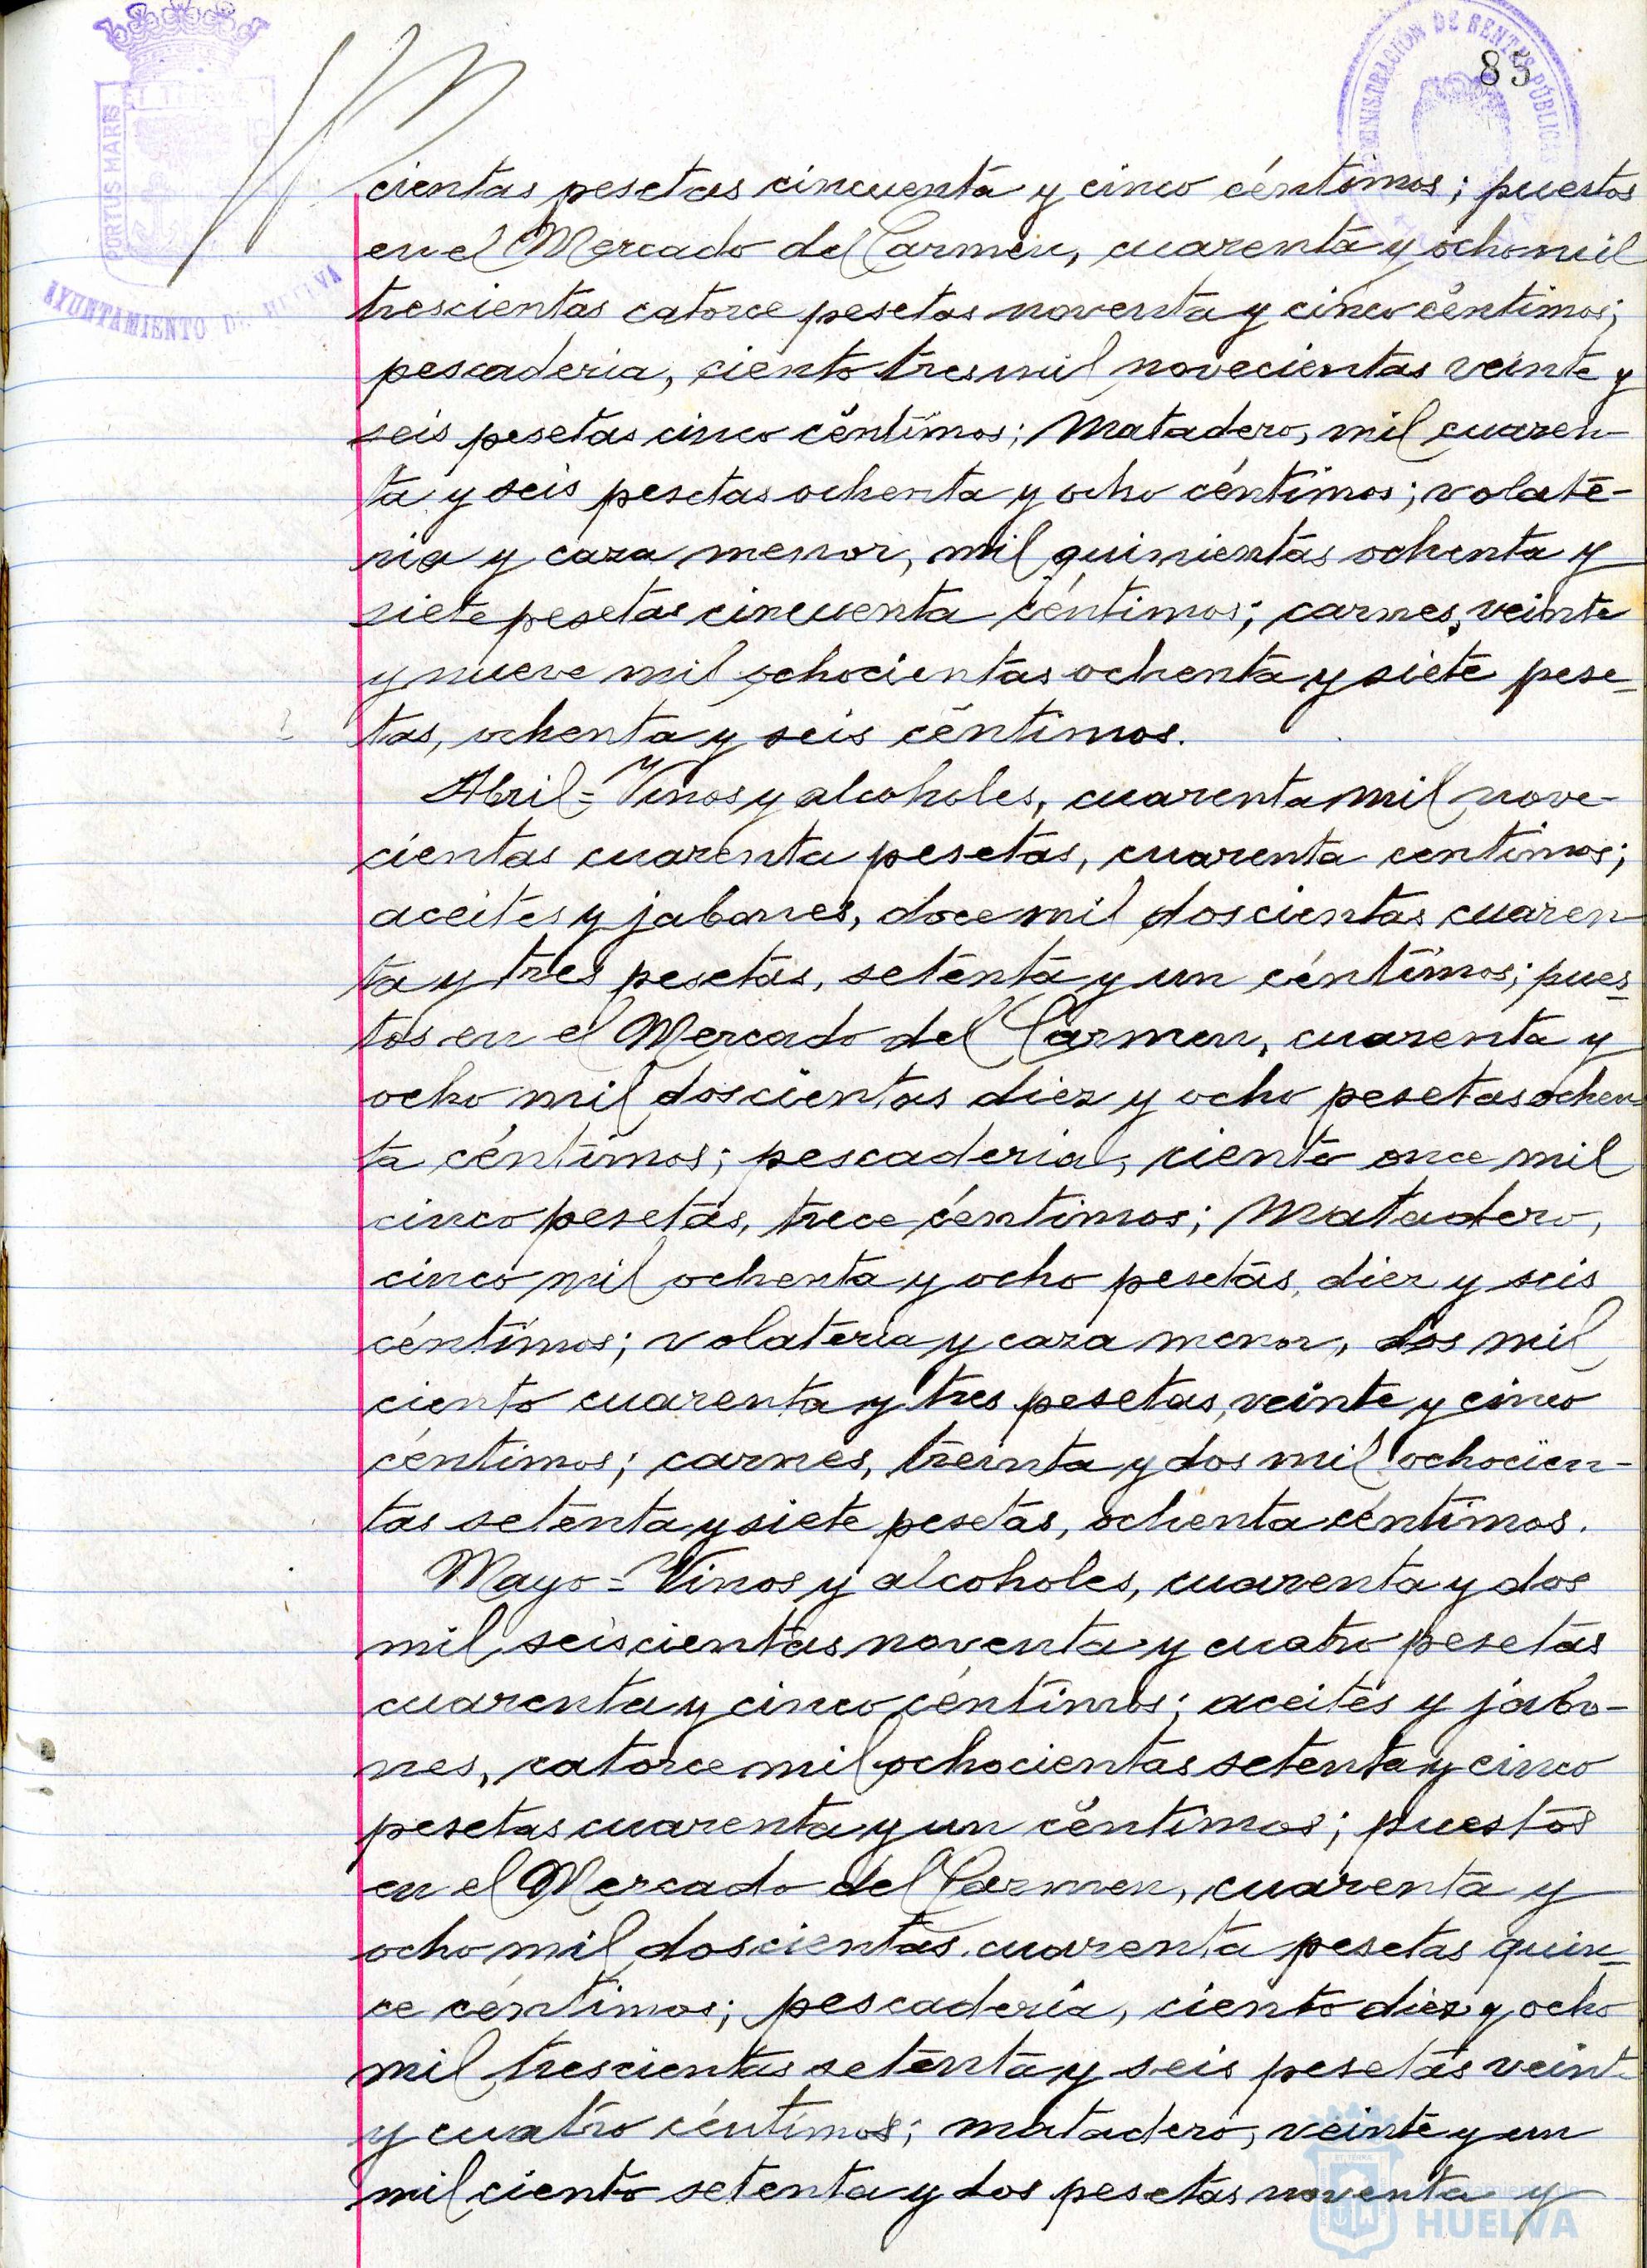 85
PORTUS MARIS
AYUNTAMIENTO DE HUELVA
ADMINISTRACIÓN DE RENTAS PÚBLICAS
cientas pesetas cincuenta y cinco céntimos; puestos
en el Mercado del Carmen, cuarenta y ocho mil
trescientas catorce pesetas noventa y cinco céntimos;
pescaderia, ciento tres mil novecientas veinte y
seis pesetas cinco céntimos; Matadero, mil cuaren-
ta y seis pesetas ochenta y ocho céntimos; volate-
ria y caza menor, mil quinientas ochenta y
siete pesetas cincuenta céntimos; carnes, veinte
y nueve mil ochocientas ochenta y siete pese-
tas, ochenta y seis céntimos.
Abril = Vinos y alcoholes, cuarenta mil nove-
cientas cuarenta pesetas, cuarenta centimos;
aceites y jabones, doce mil doscientas cuaren
ta y tres pesetas, setenta y un céntimos; pues-
tos en el Mercado del Carmen, cuarenta y
ocho mil doscientas diez y ocho pesetas ochen-
ta céntimos; pescaderia, ciento once mil
cinco pesetas, trece céntimos; Matadero,
cinco mil ochenta y ocho pesetas, diez y seis
céntimos; volateria y caza menor, dos mil
ciento cuarenta y tres pesetas, veinte y cinco
céntimos; carnes, treinta y dos mil ochocien-
tas setenta y siete pesetas, ochenta céntimos.
Mayo = Vinos y alcoholes, cuarenta y dos
mil seiscientas noventa y cuatro pesetas
cuarenta y cinco céntimos; aceites y jabo-
nes, catorce mil ochocientas setenta y cinco
pesetas cuarenta y un céntimos; puestos
en el Mercado del Carmen, cuarenta y
ocho mil doscientas cuarenta pesetas quin-
ce céntimos; pescaderia, ciento diez y ocho
mil trescientas setenta y seis pesetas veinte
y cuatro céntimos; matadero, veinte y un
mil ciento setenta y dos pesetas noventa y
HUELVA